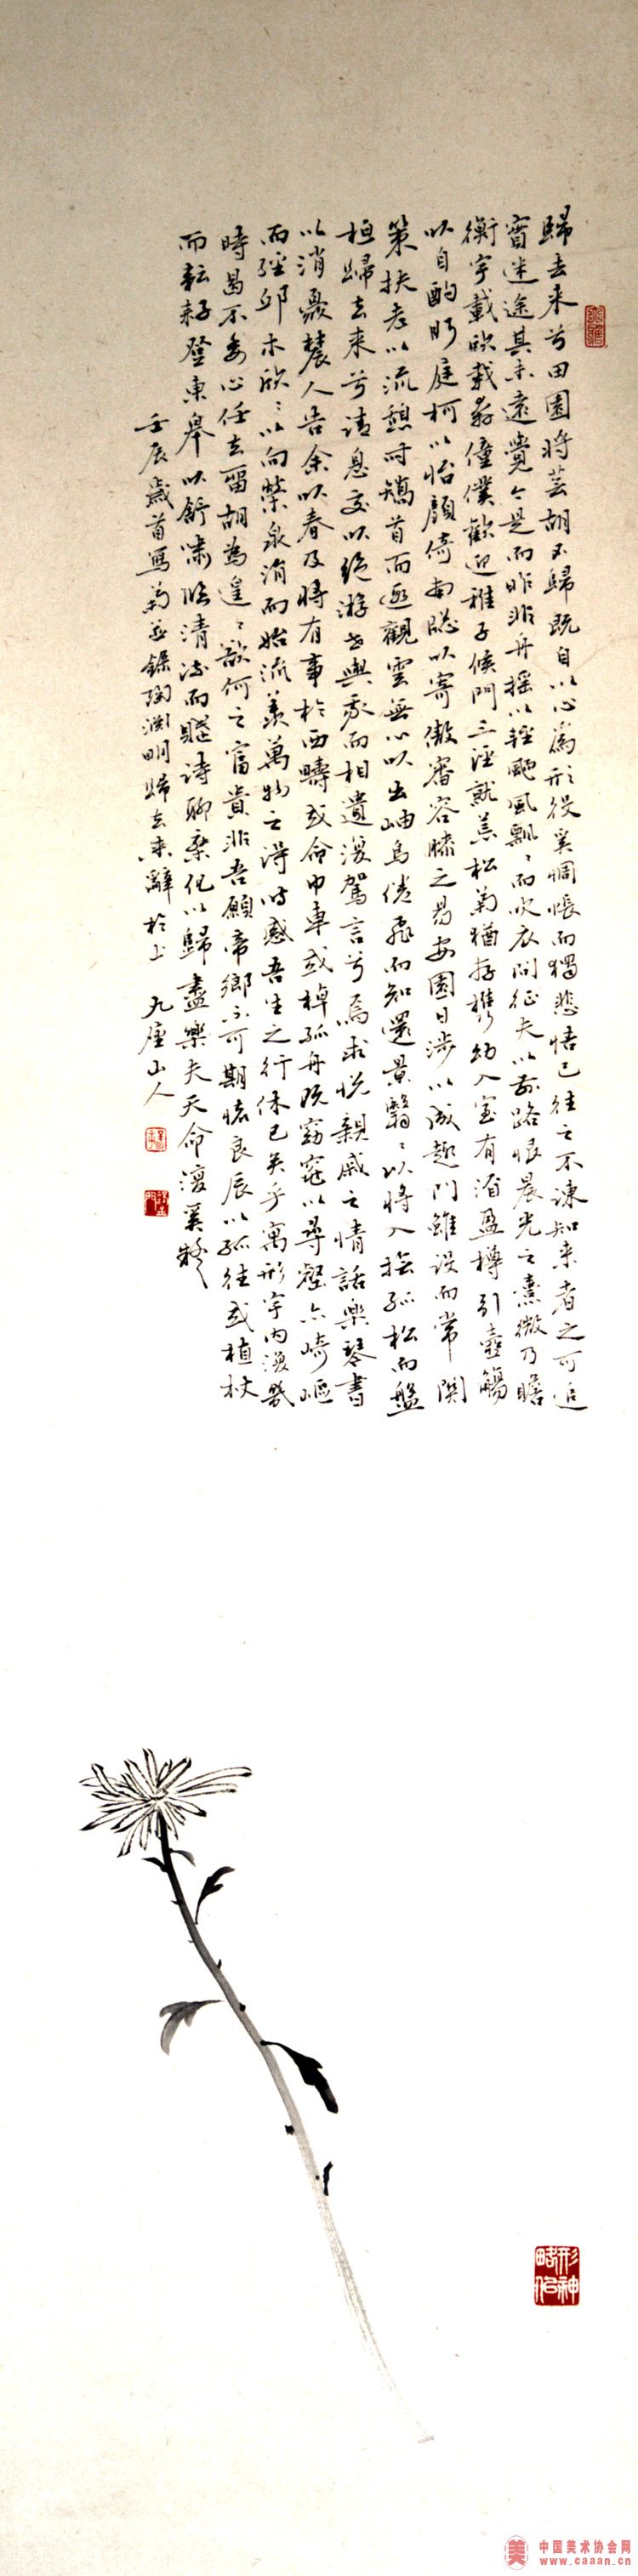 歸去來兮田園將蕪胡不歸既自以心為形役奚惆悵而獨悲悟已往之不諫知來者之可追
實迷途其未遠覺今是而昨非舟搖以輕颺風飄〻而吹衣問征夫以前路恨晨光之熹微乃瞻
衡宇載欣載奔僮僕歡迎稚子候門三逕就荒松菊猶存攜幼入室有酒盈樽引壺觴
以自酌眄庭柯以怡顏倚南牕以寄傲審容膝之易安園日涉以成趣門雖設而常關
策扶老以流憩時矯首而遐觀雲無心以出岫鳥倦飛而知還景翳〻以將入撫孤松而盤
桓歸去來兮請息交以絕游世與我而相遺復駕言兮焉求悅親戚之情話樂琴書
以消憂農人告余以春及將有事於西疇或命巾車或棹孤舟既窈窕以尋壑亦崎嶇
而經邱木欣〻以向榮泉涓而始流羨萬物之得時感吾生之行休已矣乎寓形宇內復幾
時曷不委心任去留胡為遑〻欲何之富貴非吾願帝鄉不可期懷良辰以孤往或植杖
而耘耔登東皋以舒嘯臨清流而賦詩聊乘化以歸盡樂夫天命復奚疑
壬辰歲首寫菊並錄陶淵明歸去來辭於上 九座山人
形神
中国美术协会网
www.caaan.cn